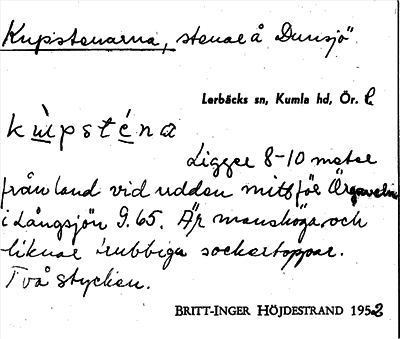 Kupstenarna, stenar å Dunsjö
Lerbäcks sn, Kumla hd, Ör. l.
kùpsténa
Ligger 8-10 meter
från land vid udden mitt för
i Långsjön 9.65. Är manshöga och
liknar trubbiga sockertoppar.
Två stycken.
BRITT-INGER HÖJDESTRAND 1952